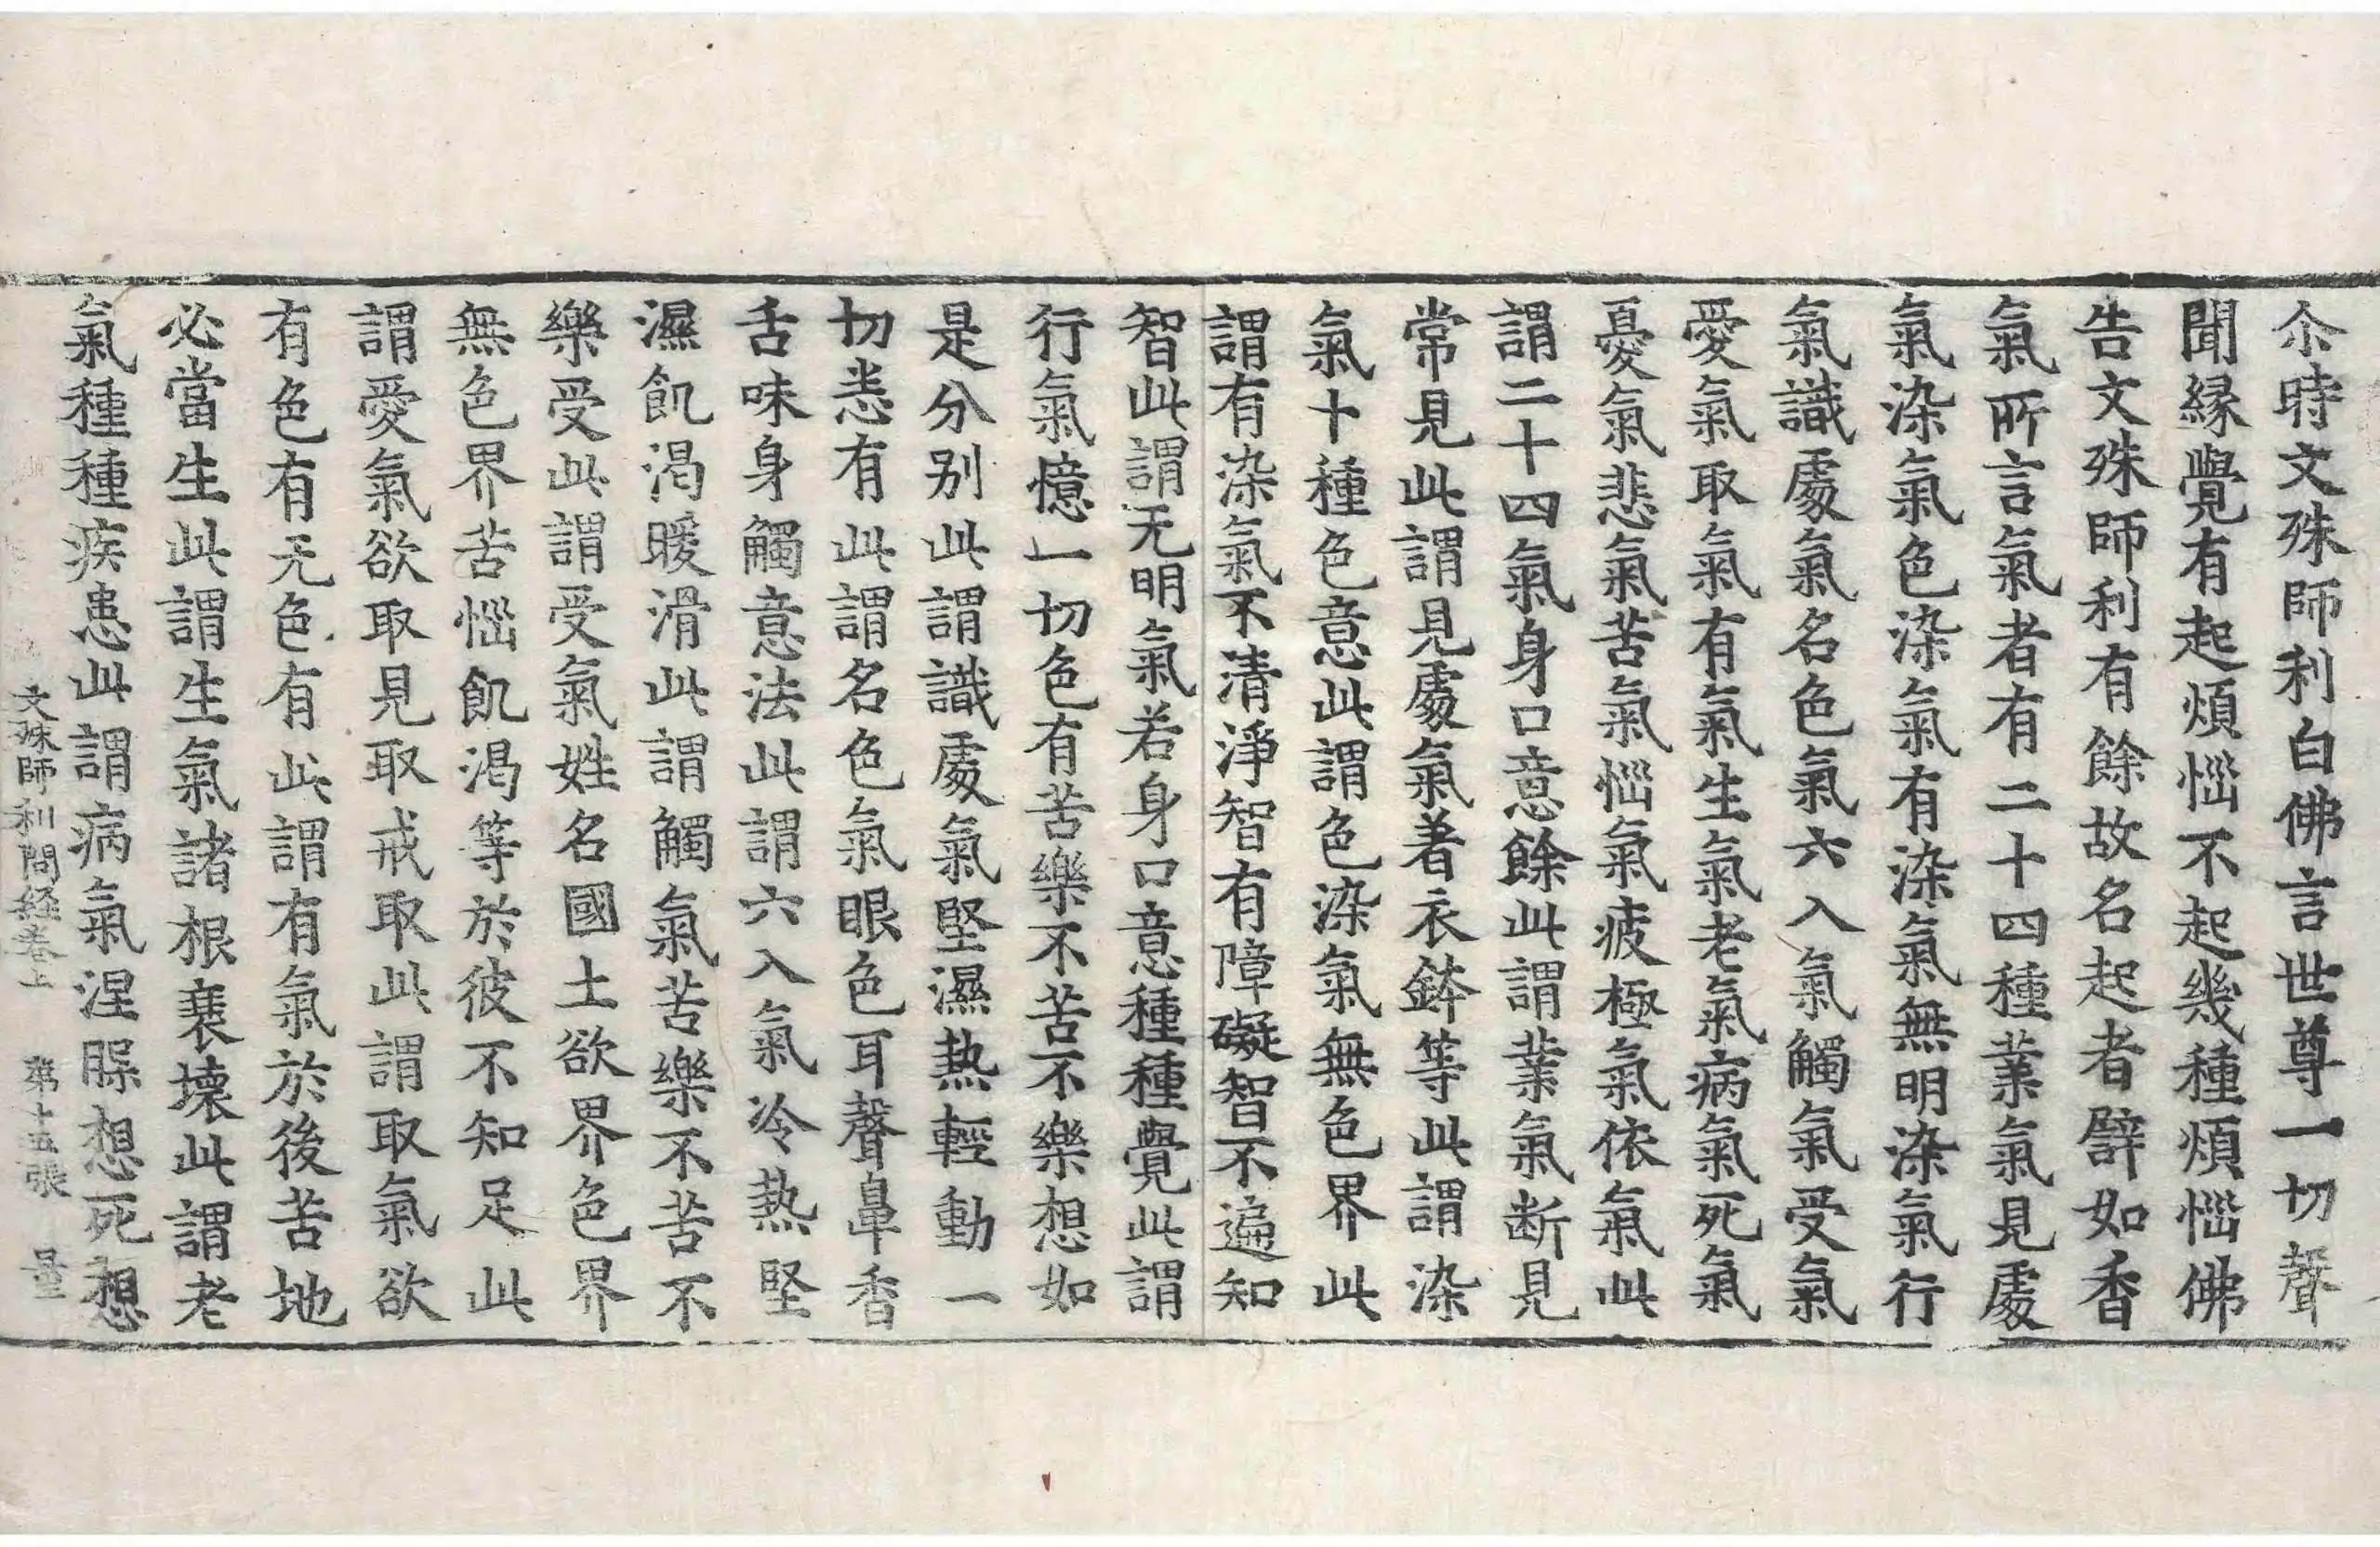 尒時文殊師利白佛言世尊一切聲
聞縁覺有起煩惱不起幾種煩惱佛
告文殊師利有餘故名起者譬如香
氣所言氣者有二十四種業氣見處
氣染氣色染氣有染氣無明染氣行
氣識處氣名色氣六入氣觸氣受氣
愛氣取氣有氣生氣老氣病氣死氣
憂氣悲氣苦氣惱氣疲極氣依氣此
謂二十四氣身口意餘此謂業氣断見
常見此謂見處氣著衣鉢等此謂染
氣十種色意此謂色染氣無色界此
謂有染氣不清淨智有障礙智不遍知
智此謂无明氣若身口意種種覺此謂
行氣憶一切色有苦樂不苦不樂想如
是分别此謂識處氣堅濕熱輕動一
切悉有此謂名色氣眼色耳聲鼻香
舌味身觸意法此謂六入氣冷熱堅
濕飢渴暖滑此謂觸氣苦樂不苦不
樂受此謂受氣姓名國土欲界色界
無色界苦惱飢渴等於彼不知足此
謂愛氣欲取見取戒取此謂取氣欲
有色有无色有此謂有氣於後苦地
必當生此謂生氣諸根衰壊此謂老
氣種種疾患此謂病氣涅槃想死想
文殊師利問経卷上 第十五張 量